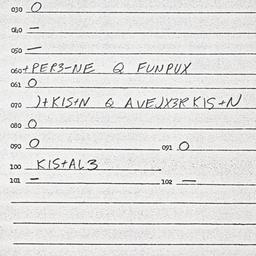 030 O
040 —
050 —
060 +PER3-NE Q FUNPUX
061 O
070 )+KIS+N Q AVEJX3R KIS+N
080 O
090 O 091 O
100 KIS+AL3
101 — 102 —